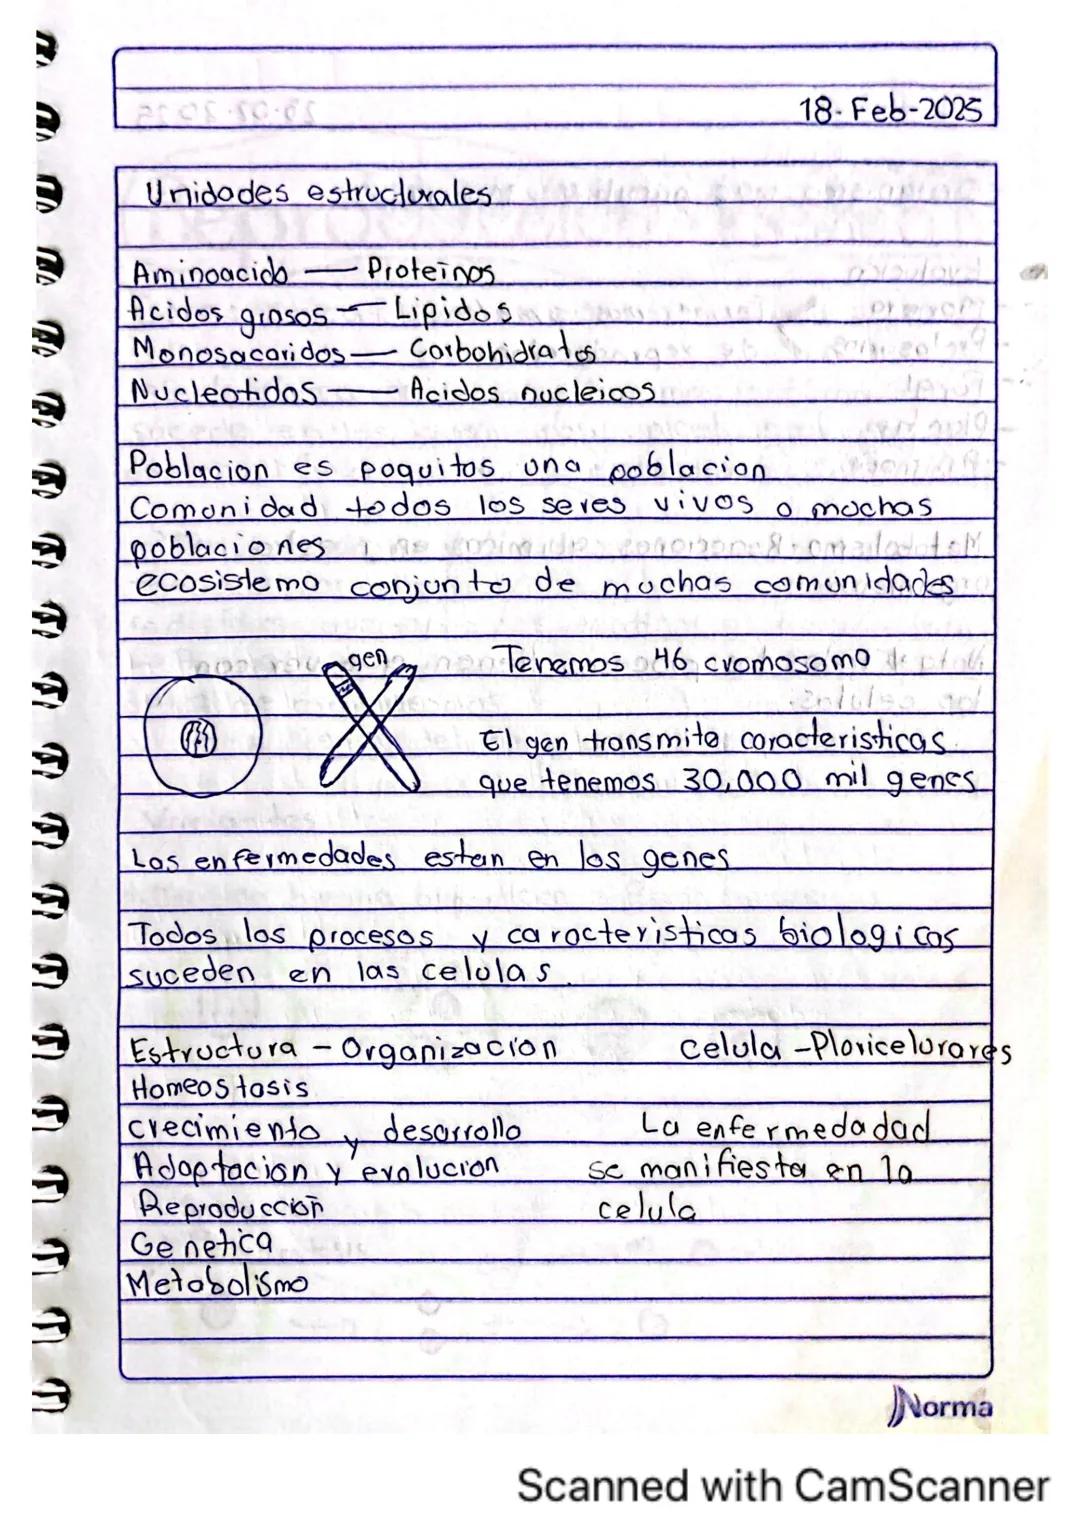 18-Feb-2025
Unidades estructurales
Aminoacido — Proteinas
Acidos grasos — Lipidos
Monosacaridos — Carbohidratos
Nucleotidos — Acidos nucleicos
Poblacion es poquitos una poblacion
Comunidad todos los seres vivos o muchas
poblaciones
ecosistema conjunto de muchas comunidades
gen
Tenemos 46 cromosomo
El gen transmite caracteristicas
que tenemos 30,000 mil genes
Las enfermedades estan en los genes
Todos los procesos y caracteristicas biologicas
suceden en las celulas.
Estructura - Organizacion celula - Pluricelurares
Homeostasis
crecimiento y desarrollo La enfermedadad
Adaptacion y evolucion se manifiesta en la
Reproduccion celula
Genetica
Metabolismo
Norma
Scanned with CamScanner